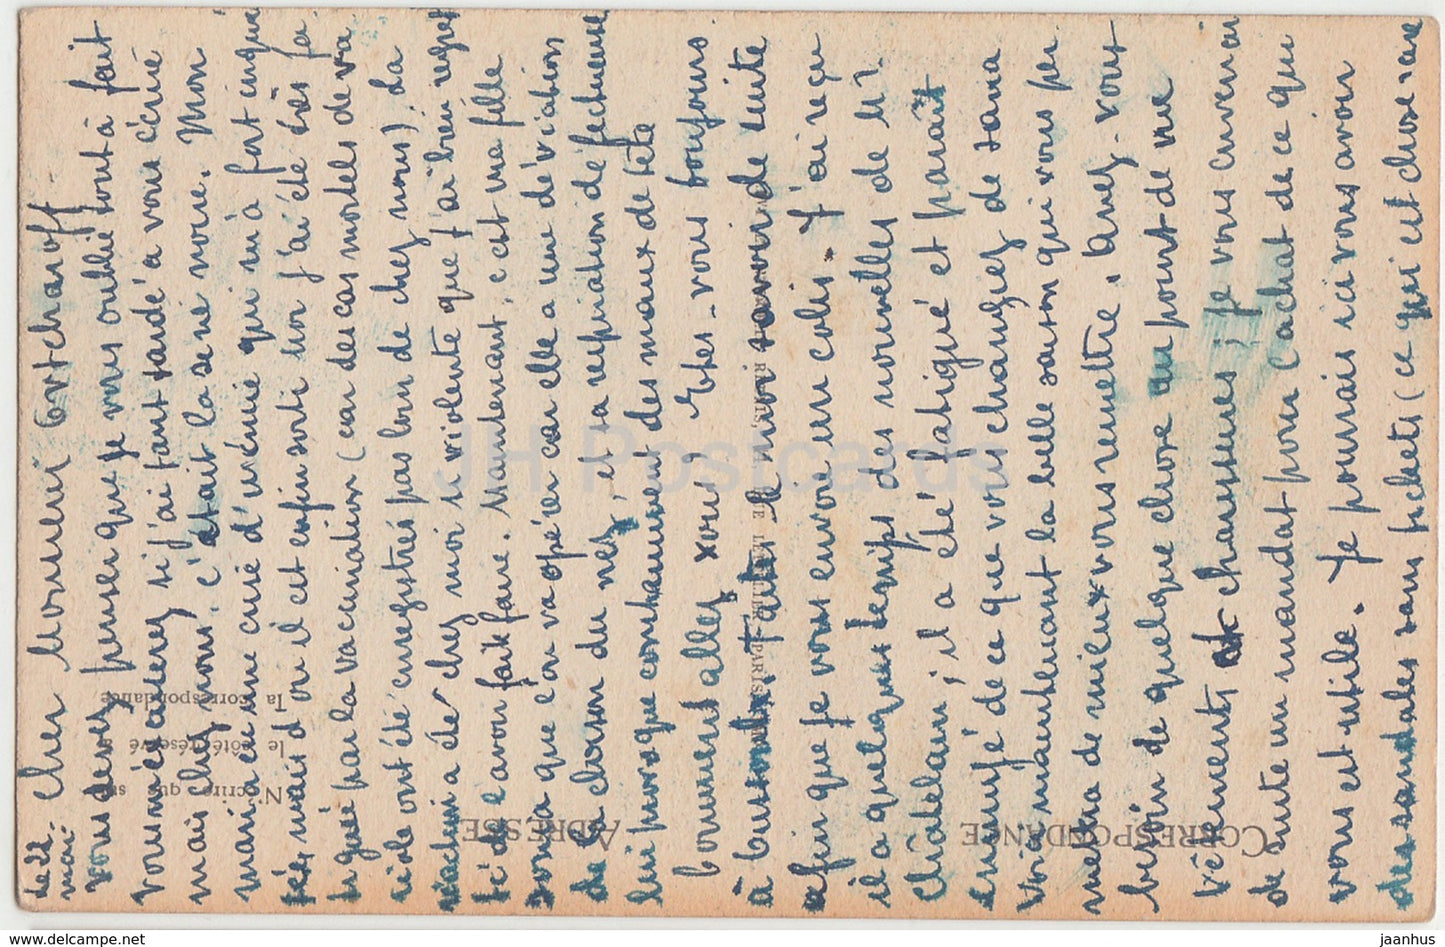 le 22 mai. Cher Monsieur Ortcharoff.
vous devez penser que je vous oublie tout à fait
vous m'excuserez si j'ai tant tardé à vous écrire
mais chez nous, c'était la série noire. Mon
mari a eu une crise d'urémie qui m'a fort inquié
tée, mais d'où il est enfin sorti mon j'ai été très fa
tiguée par la vaccination (car des cas mortels de va
riole ont été enregistrés pas loin de chez nous). La
réaction a été chez moi si violente que j'ai bien regret
té de l'avoir fait faire. Maintenant, c'est ma fille
Sonia que l'on va opérer car elle a une déviation
de la cloison du nez, et sa respiration défectueuse
lui provoque constamment des maux de tête
Comment allez vous? Etes-vous toujours
à Faites le moi savoir de suite
afin que je vous envoie un colis. J'ai reçu
il a quelques temps des nouvelles de Mr
Chatelain; il a été fatigué et paraît
ennuyé de ce que vous changiez de sana
Voici maintenant la belle saison qui vous per
mettra de mieux vous remettre. Avez-vous
besoin de quelque chose au point de vue
vêtements chaussures; je vous enverrai
de suite un mandat pour l'achat de ce qui
vous est utile. Je pourrais ici vous avoir
des sandales sans tickets (ce qui est chose rare
N'écrire que sur
le côté réservé
la correspondance
ADRESSE
CORRESPONDANCE
PARIS
JH Postcards
www.delcampe.net
jaanhus